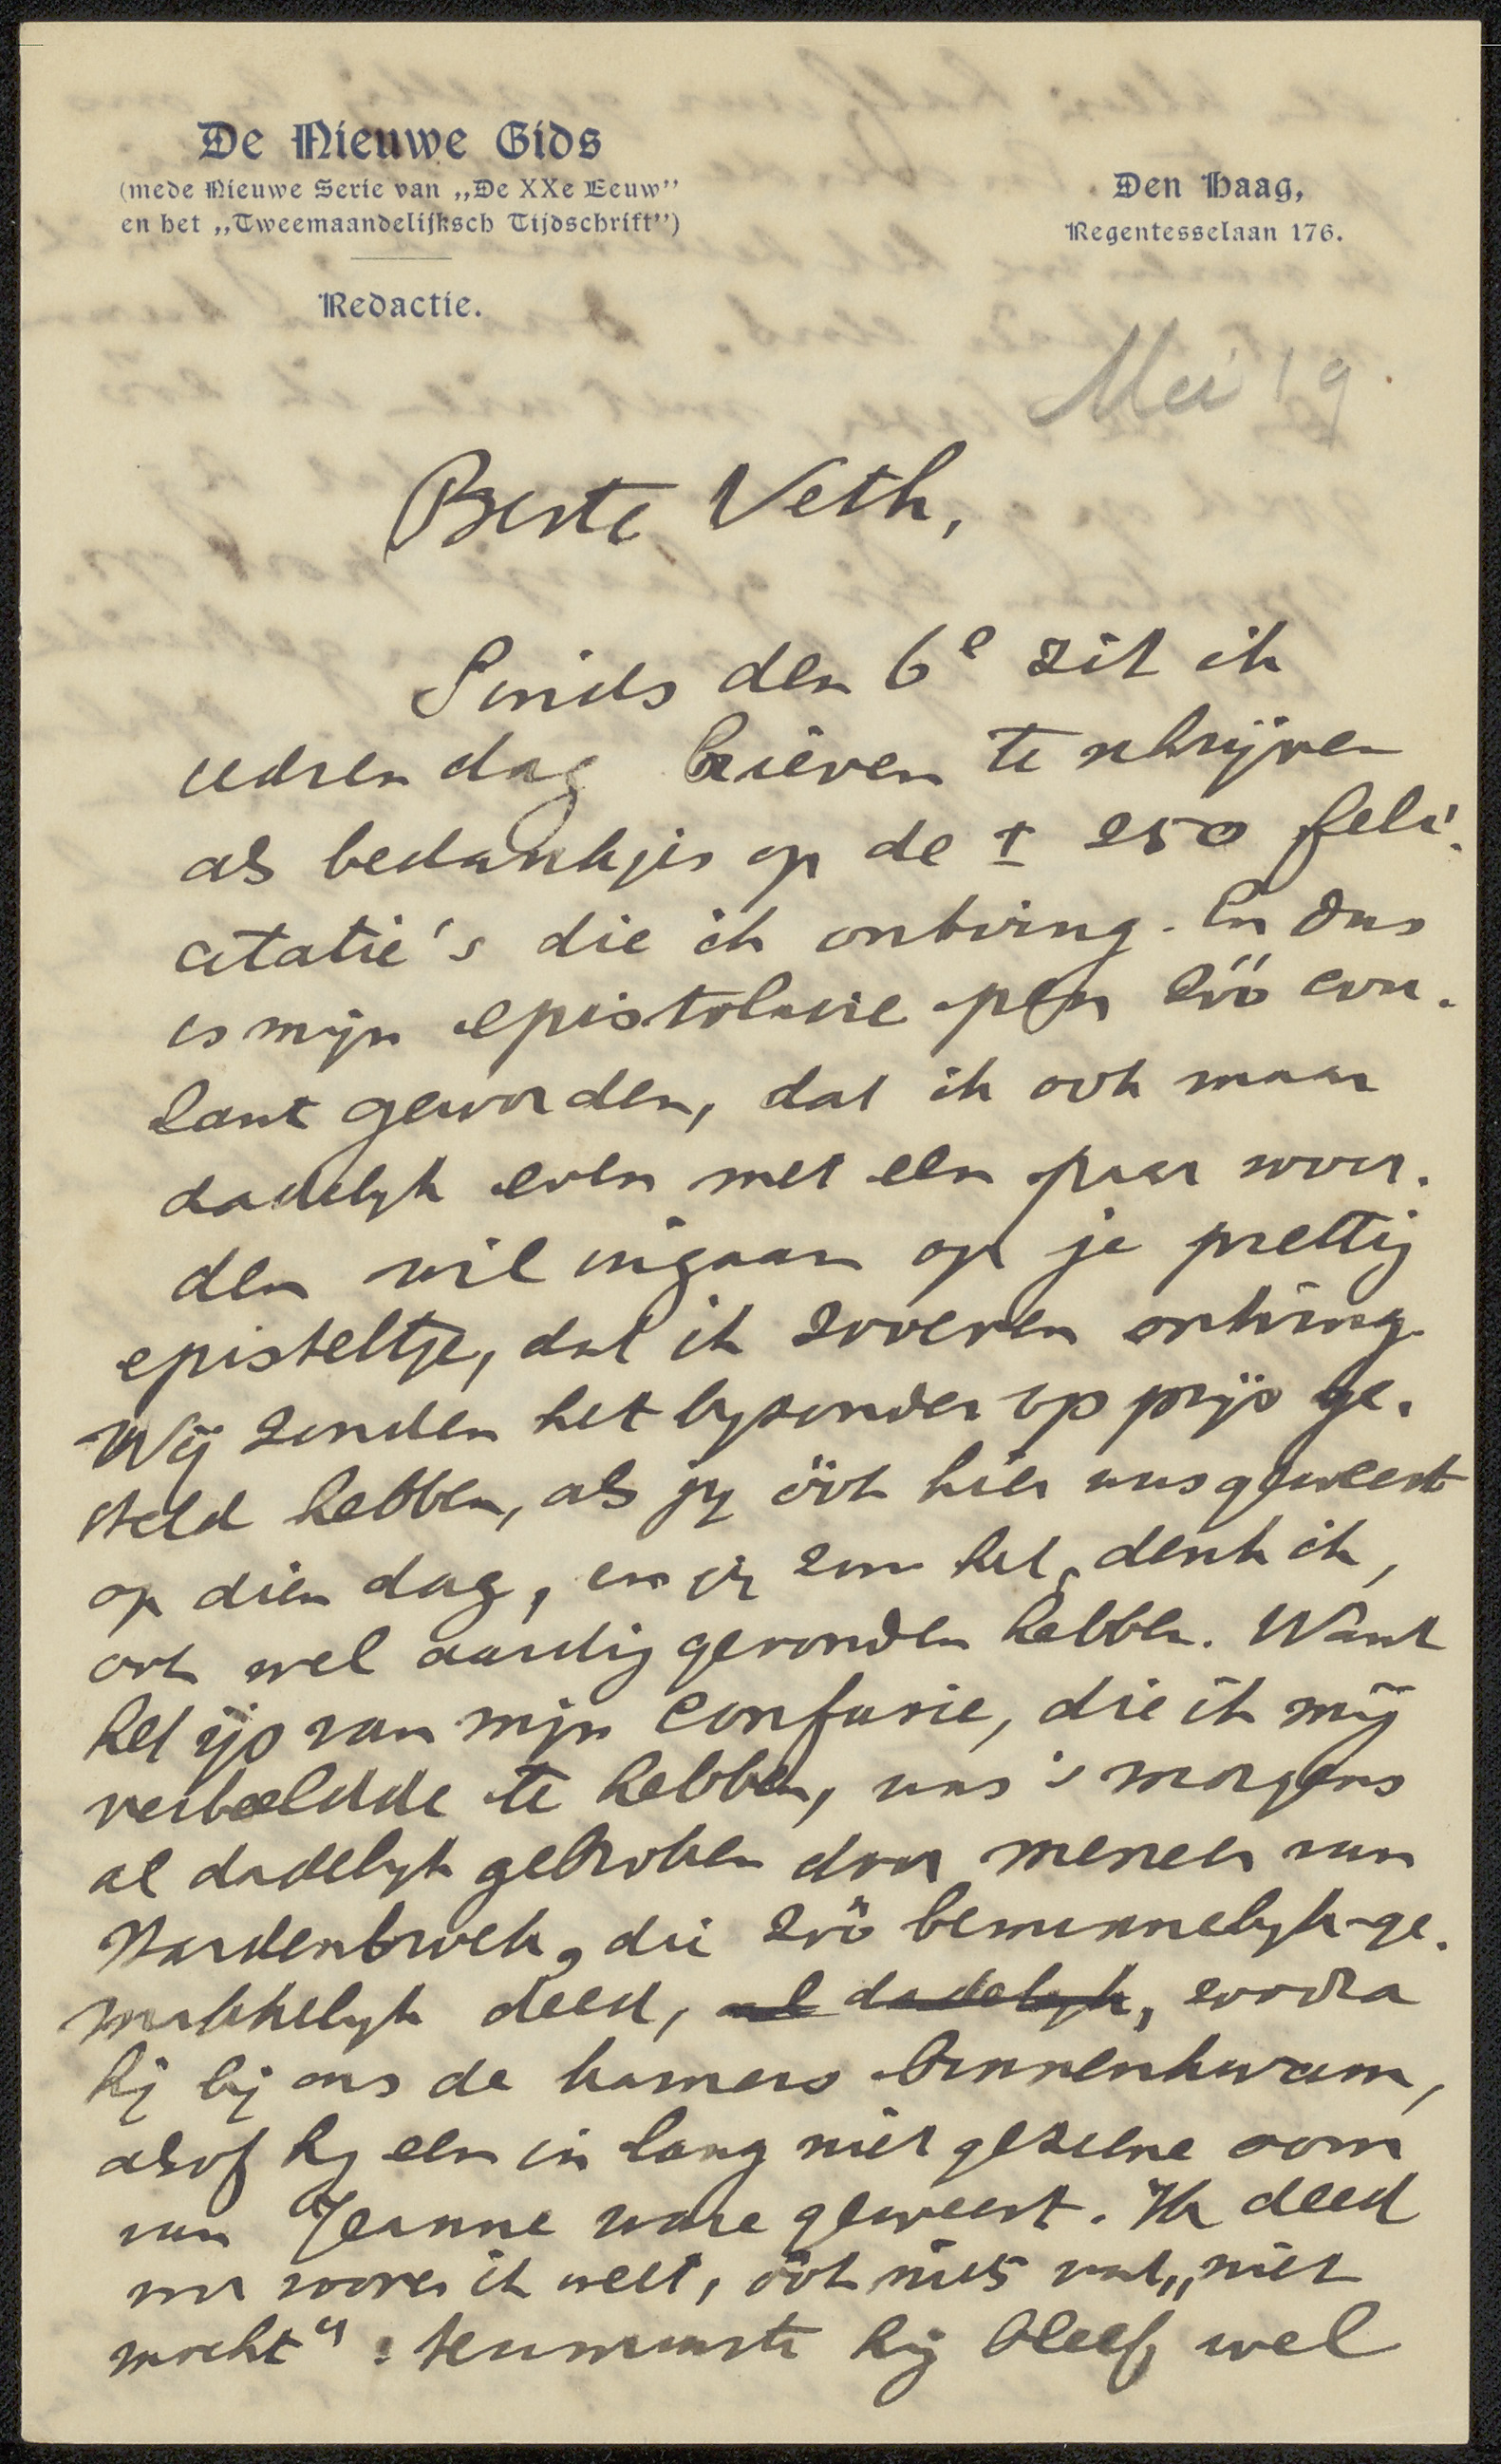 De Nieuwe Gids
(mede Nieuwe Serie van „De XXe Eeuw”
en het „Tweemaandelijksch Tijdschrift”)
Redactie.
Den Haag,
Regentesselaan 176.
Mei 19
Beste Veth,
Sinds den 6e zit ik
iedren dag brieven te schrijven
als bedankjes op de ± 250 feli-
citatie's die ik ontving. En dus
is mijn epistolaire pen zóó cou-
lant geworden, dat ik ook maar
dadelyk even met een paar woor-
den wil ingaan op je prettig
episteltje, dat ik zooeven ontving.
Wij zouden het byzonder op prijs ge-
steld hebben, als jy óók hier was geweest
op dien dag, en jy zou het, denk ik,
ook wel aardig gevonden hebben. Want
het ijs van mijn confusie, die ik mij
verbeeldde te hebben, was 's morgens
al dadelyk gebroken door meneer van
die zóó beminnelyk-ge-
makkelyk deed, al dadelyk, zoodra
hij bij ons de kamers binnenkwam,
alsof hy een in lang niet geziene oom
van Jeanne ware geweest. Ik deed
nu zoover ik weet, óók niets wat „niet
mocht“: tenminste hij bleef wel